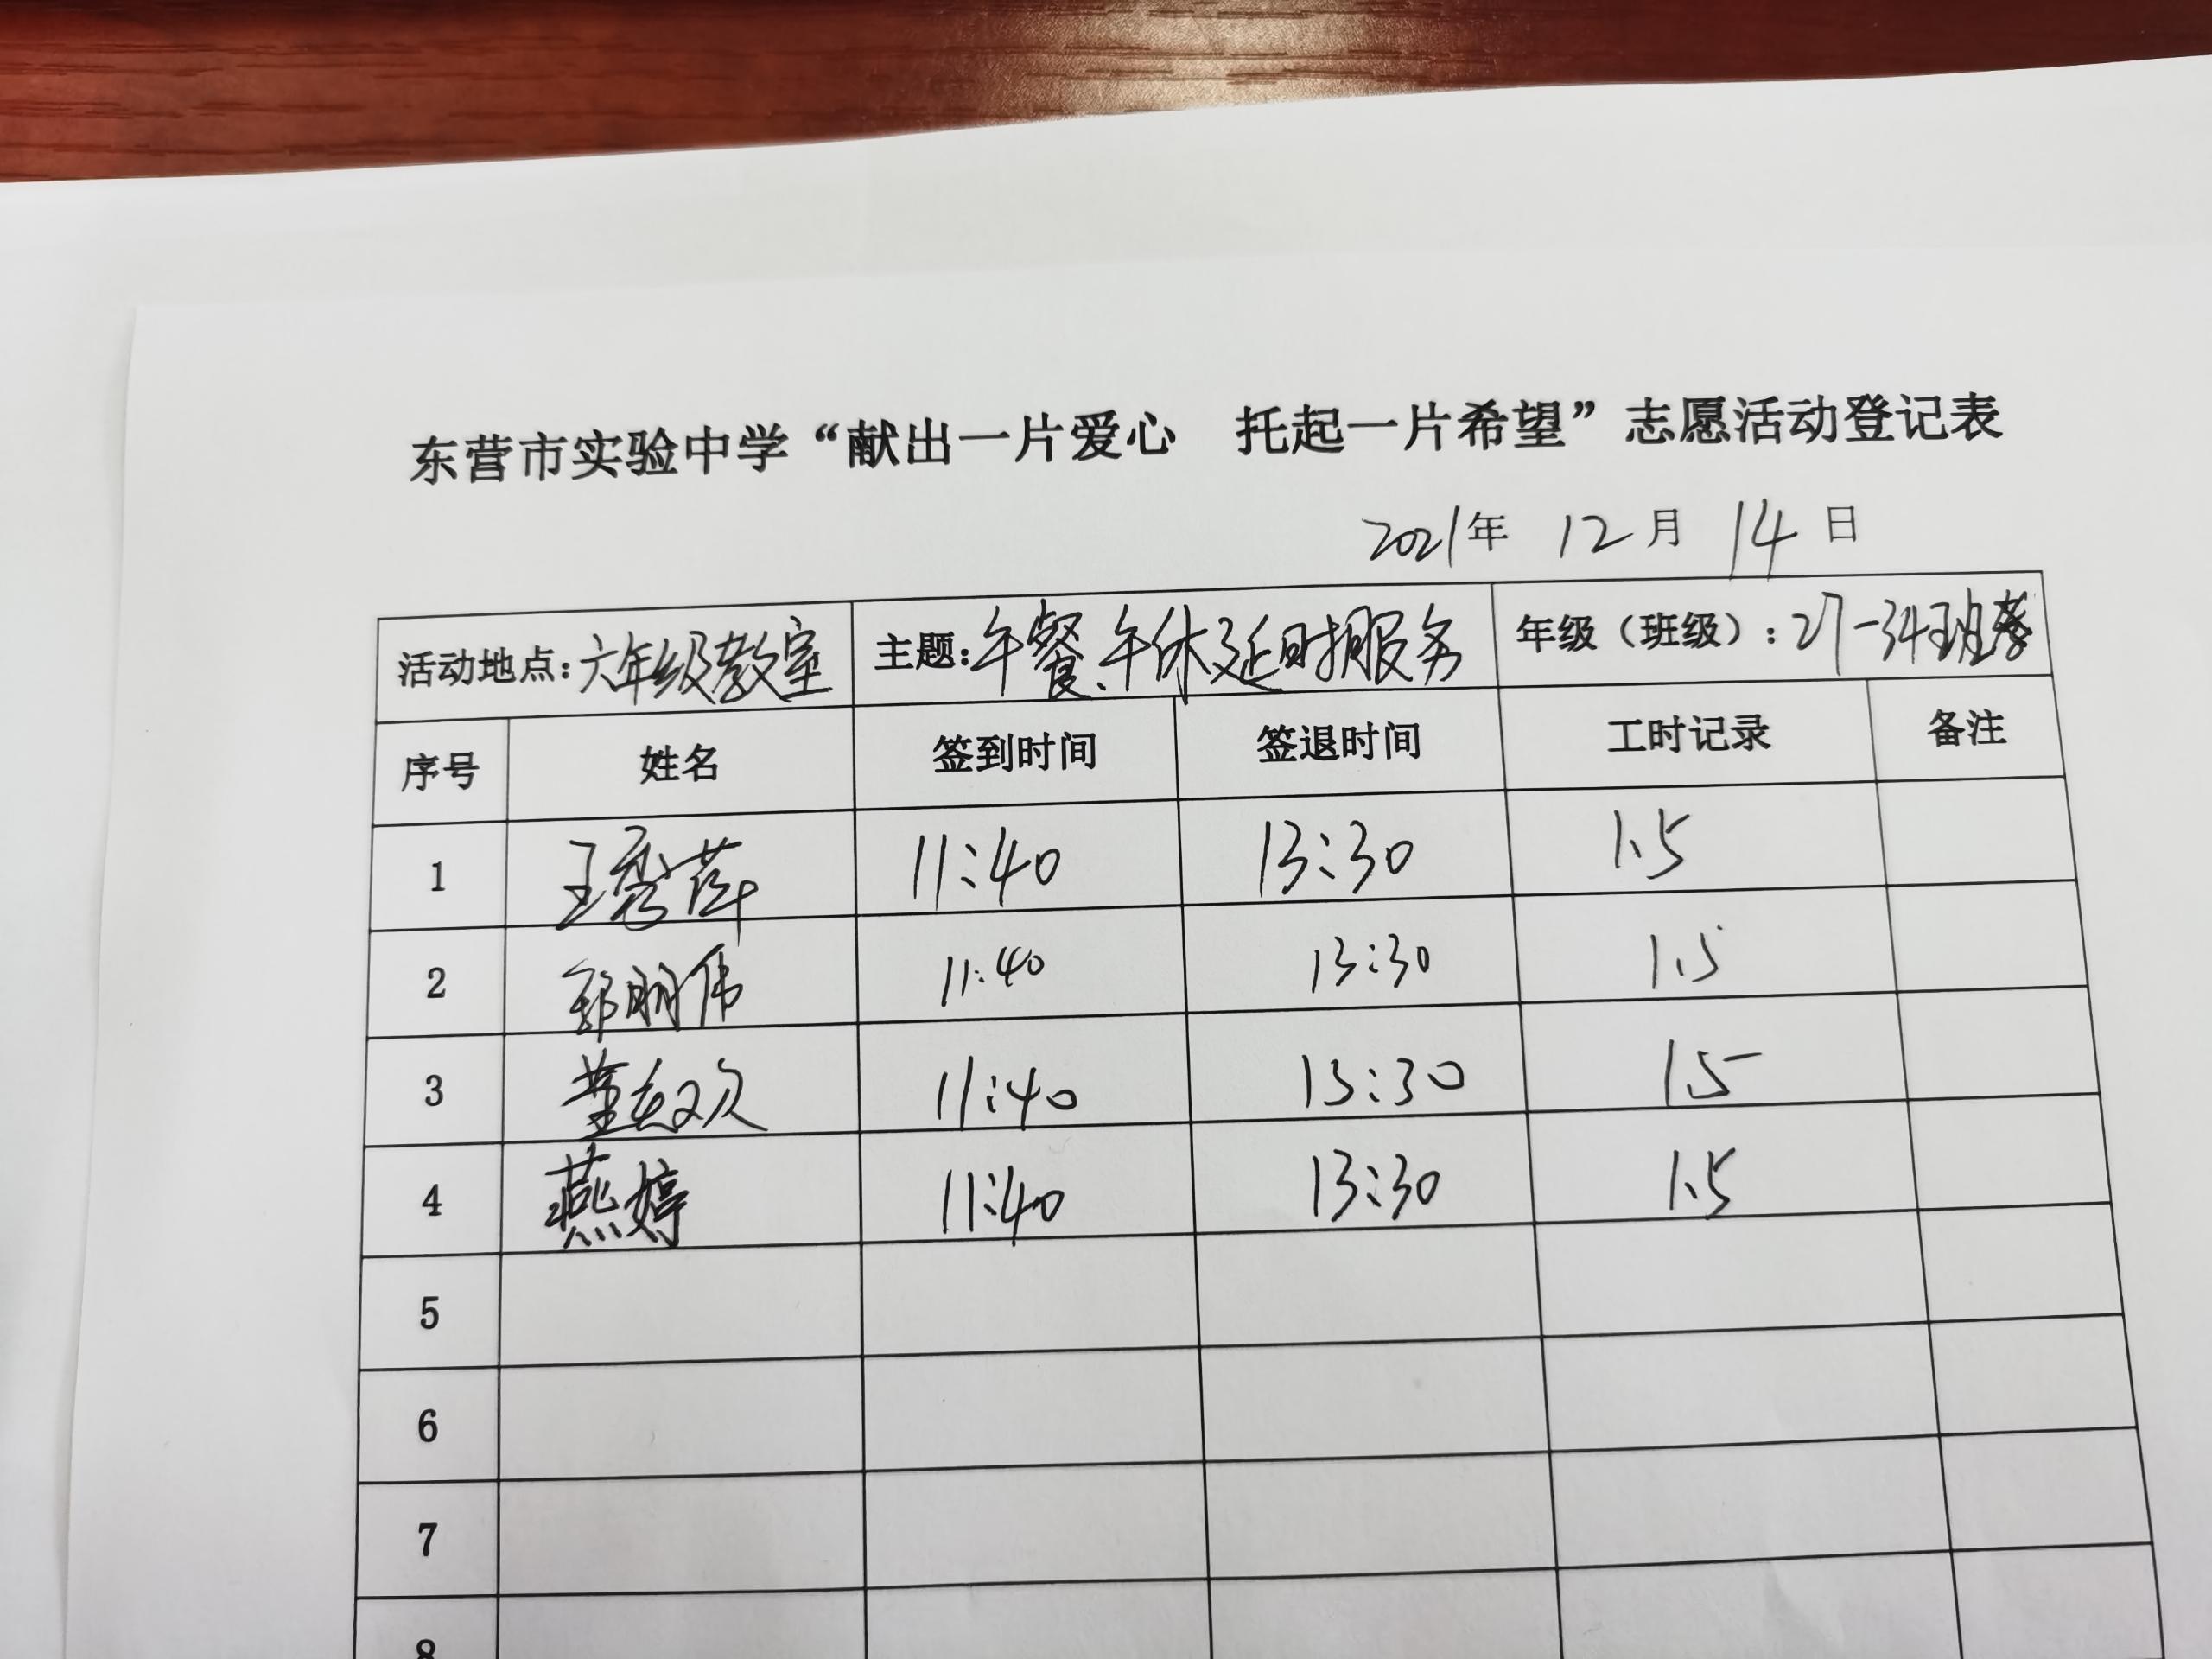 东营市实验中学“献出一片爱心　托起一片希望”志愿活动登记表
2021年 12月 14日
活动地点：六年级教室 主题：午餐、午休延时服务 年级（班级）：27-34班
序号 姓名 签到时间 签退时间 工时记录 备注
1 王秀萍 11:40 13:30 1.5
2 郭朋伟 11:40 13:30 1.5
3 董 11:40 13:30 1.5
4 燕婷 11:40 13:30 1.5
5
6
7
8